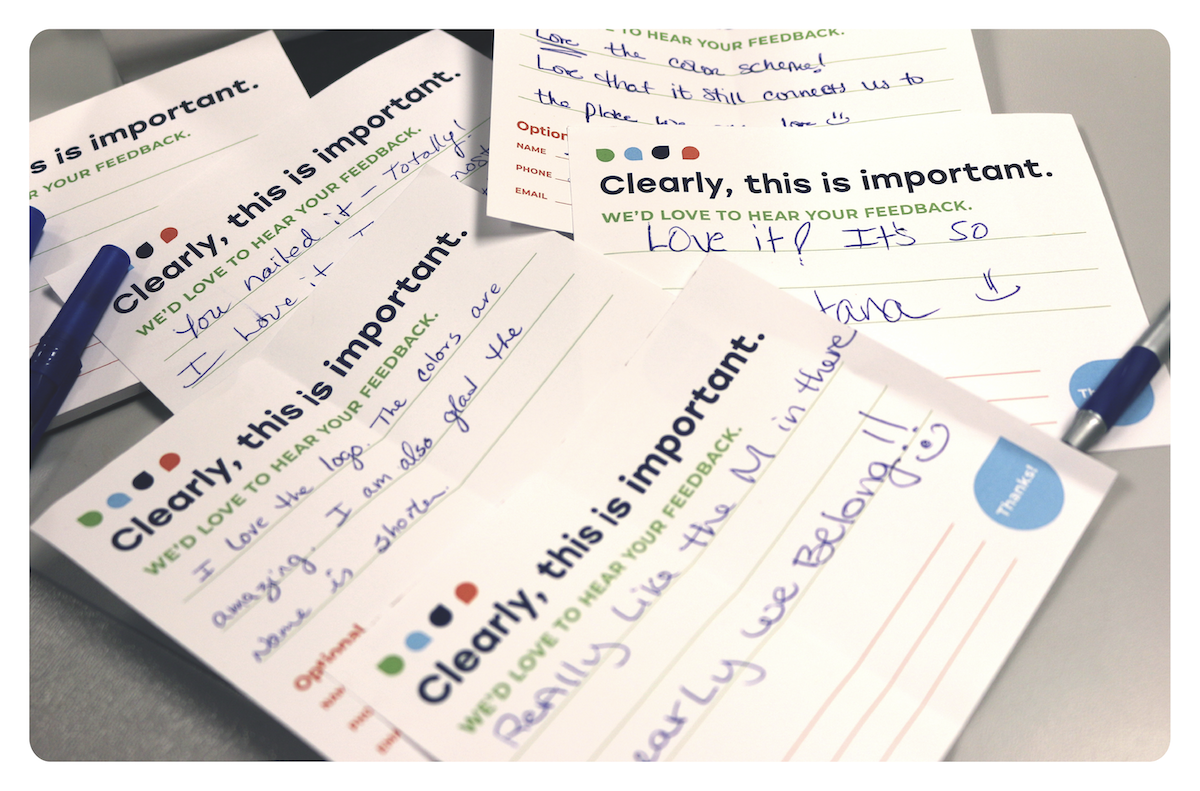 s is important.
R YOUR FEEDBACK.
Clearly, this is important.
WE'D LOVE TO HEAR YOUR FEEDBACK.
You nailed it — Totally!
I Love it
TO HEAR YOUR FEEDBACK.
Love the color scheme!
Love that it still connects us to
the place we love
Option
NAME
PHONE
EMAIL
Clearly, this is important.
WE'D LOVE TO HEAR YOUR FEEDBACK.
Love it! It's so
tana
Thanks!
Clearly, this is important.
WE'D LOVE TO HEAR YOUR FEEDBACK.
I love the logo. The colors are
amazing. I am also glad the
name is shorter.
Optional
Clearly, this is important.
WE'D LOVE TO HEAR YOUR FEEDBACK.
Really Like the M in there
early we Belong!!